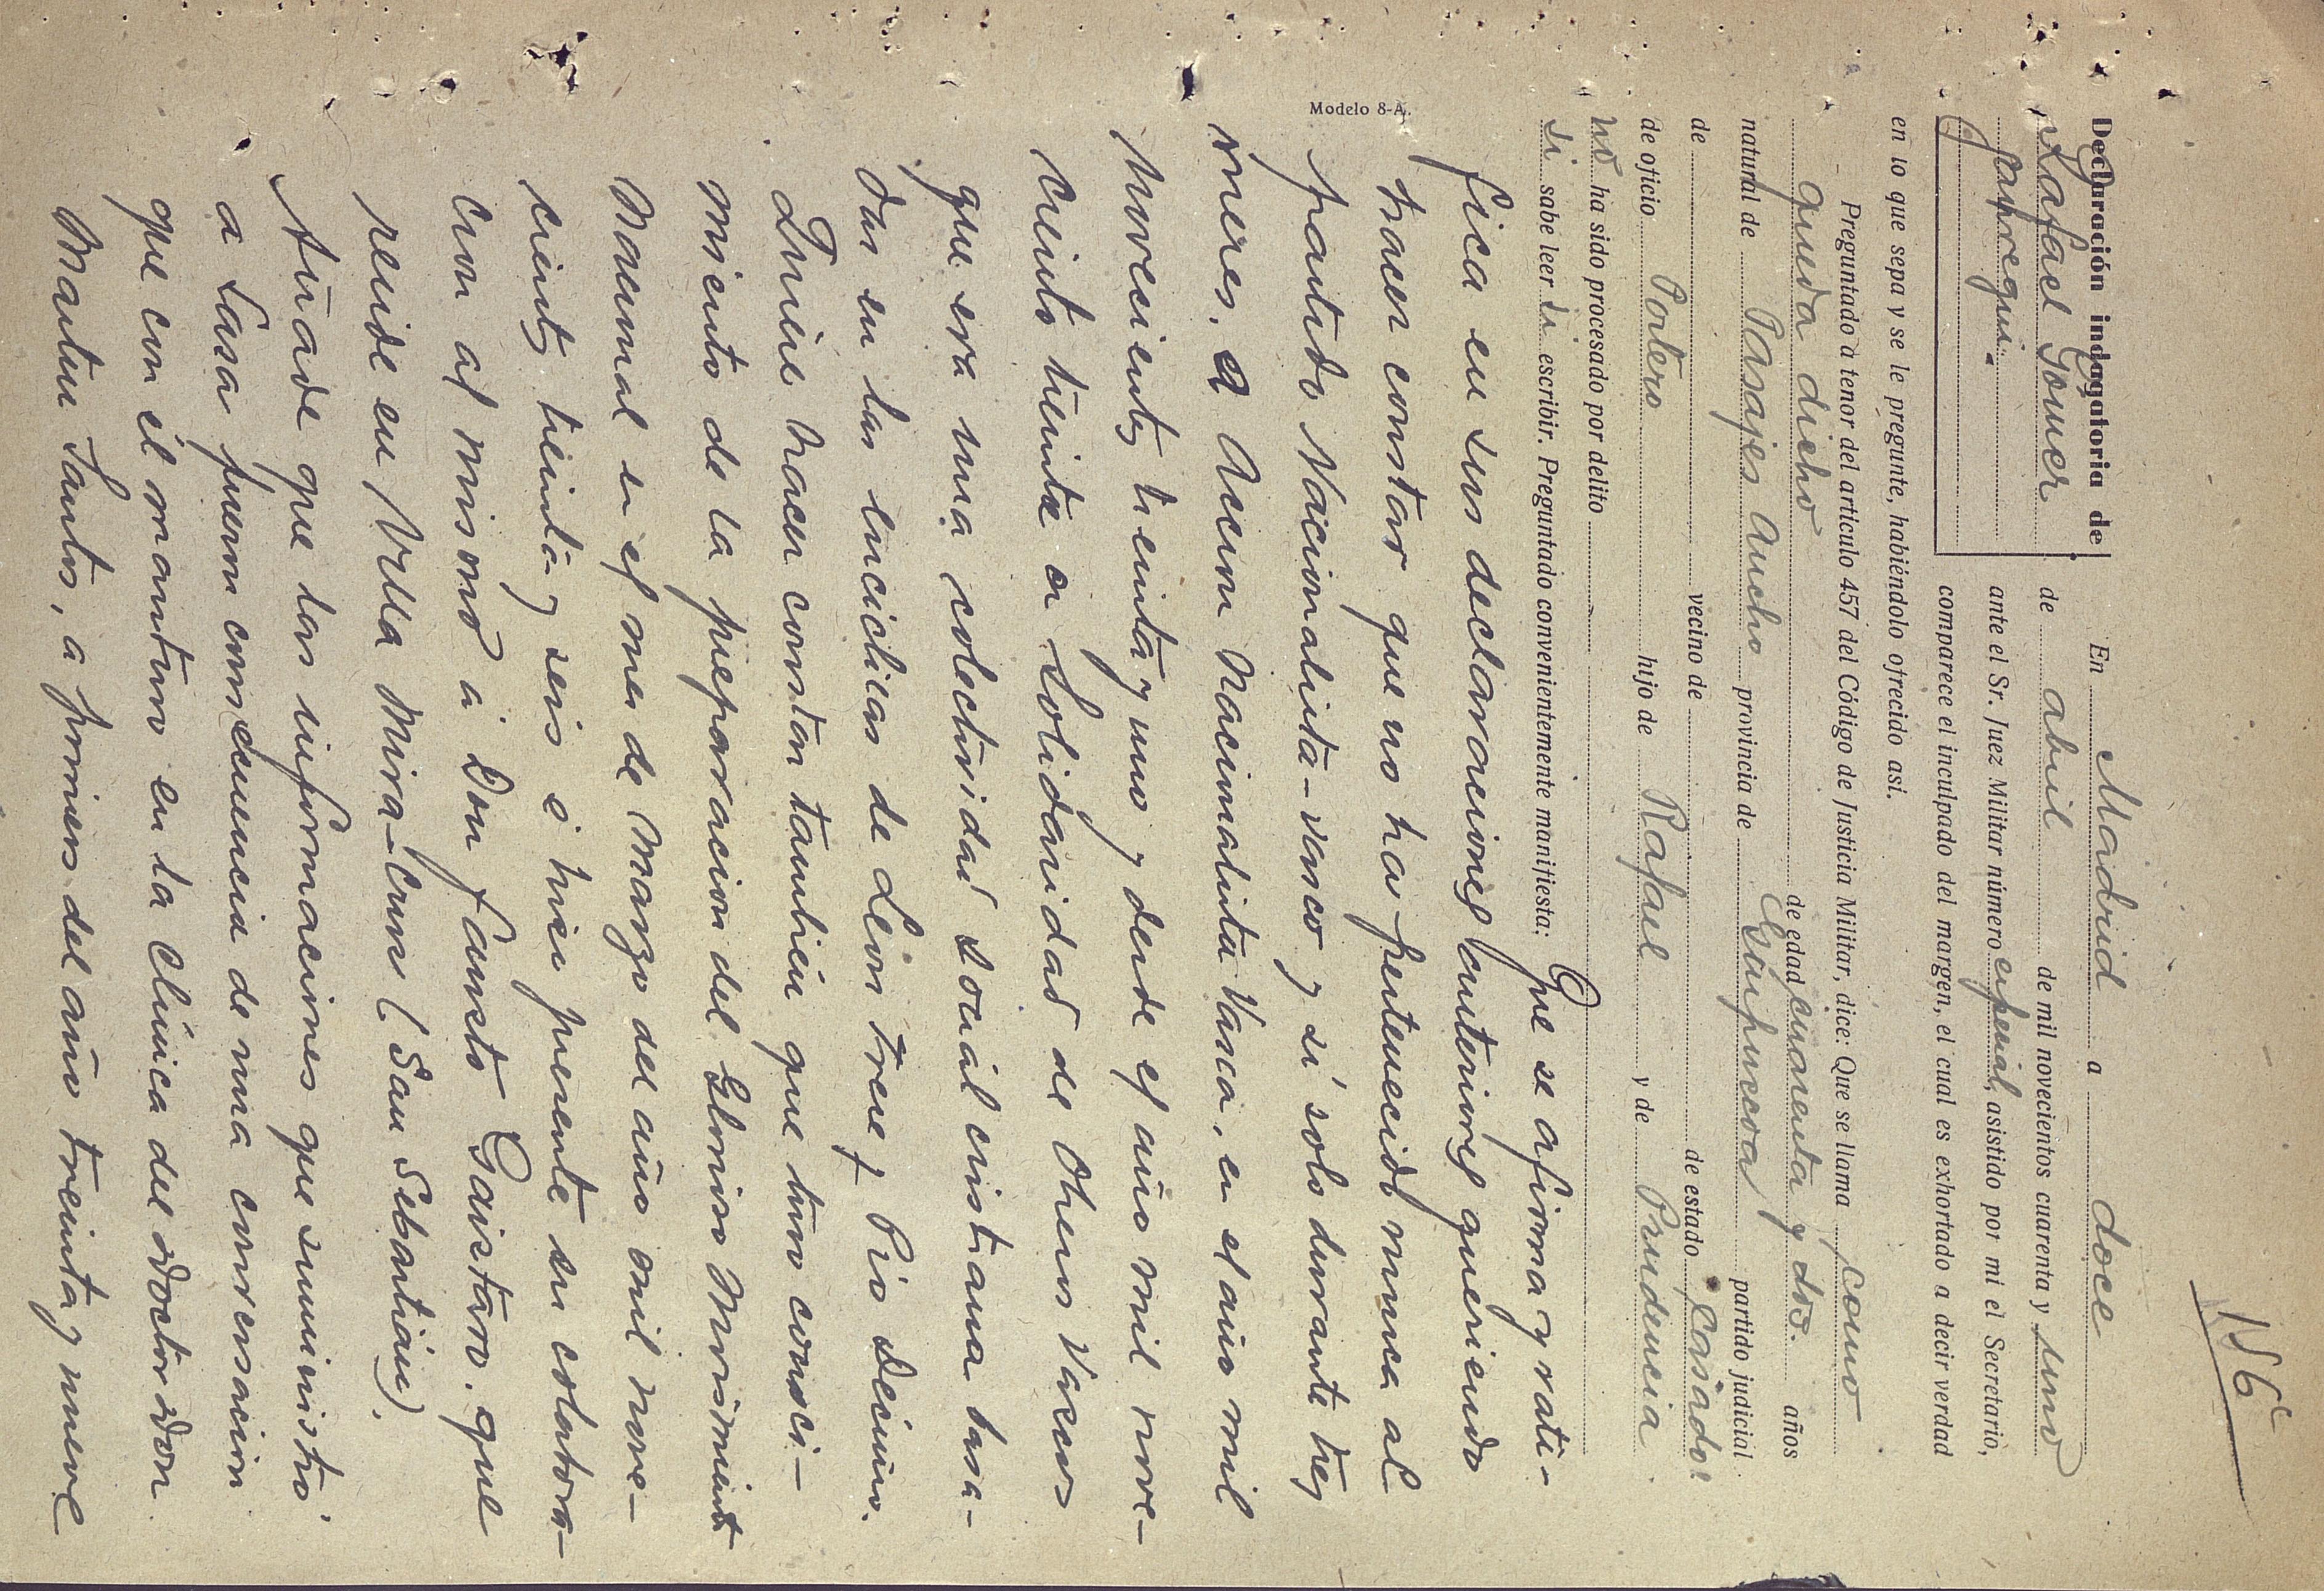 156
Declaración indagatoria de
Rafael Gómez
Jauregui.
En Madrid a doce
de abril de mil novecientos cuarenta y uno
ante el Sr. Juez Militar número especial, asistido por mi el Secretario,
comparece el inculpado del margen, el cual es exhortado a decir verdad
en lo que sepa y se le pregunte, habiéndolo ofrecido así.
Preguntado a tenor del artículo 457 del Código de Justicia Militar, dice: Que se llama como
queda dicho de edad cuarenta y dos. años
natural de Pasajes Ancho provincia de Guipuzcoa partido judicial
de vecino de de estado Casado
de oficio Portero hijo de Rafael y de Prudencia
no ha sido procesado por delito
si sabe leer si escribir. Preguntado convenientemente manifiesta: Que se afirma y rati-
fica en sus declaraciones anteriores queriendo
hacer constar que no ha pertenecido nunca al
partido Nacionalista-vasco y sí solo durante tres
meses, a Accion Nacionalista Vasca, en el año mil
novecientos treinta y uno y desde el año mil nove-
cientos treinta a Solidaridad de Obreros Vascos
que era una colectividad social cristiana basa-
da en las enciclicas de León trece y Pio Decimo.
Quiere hacer constar tambien que tuvo conoci-
miento de la preparacion del Glorioso Movimiento
Nacional en el mes de Marzo del año mil nove-
cientos treinta y seis e hizo presente su colabora-
cion al mismo a Don Fausto Gaiztarro. que
reside en Villa Mira-Cruz (San Sebastian).
Añade que las informaciones que suministró
a Lasa fueron consecuencia de una conversacion
que con él mantuvo en la clínica del doctor Don
Martin Santos, a primeros del año treinta y nueve
Modelo 8-A.